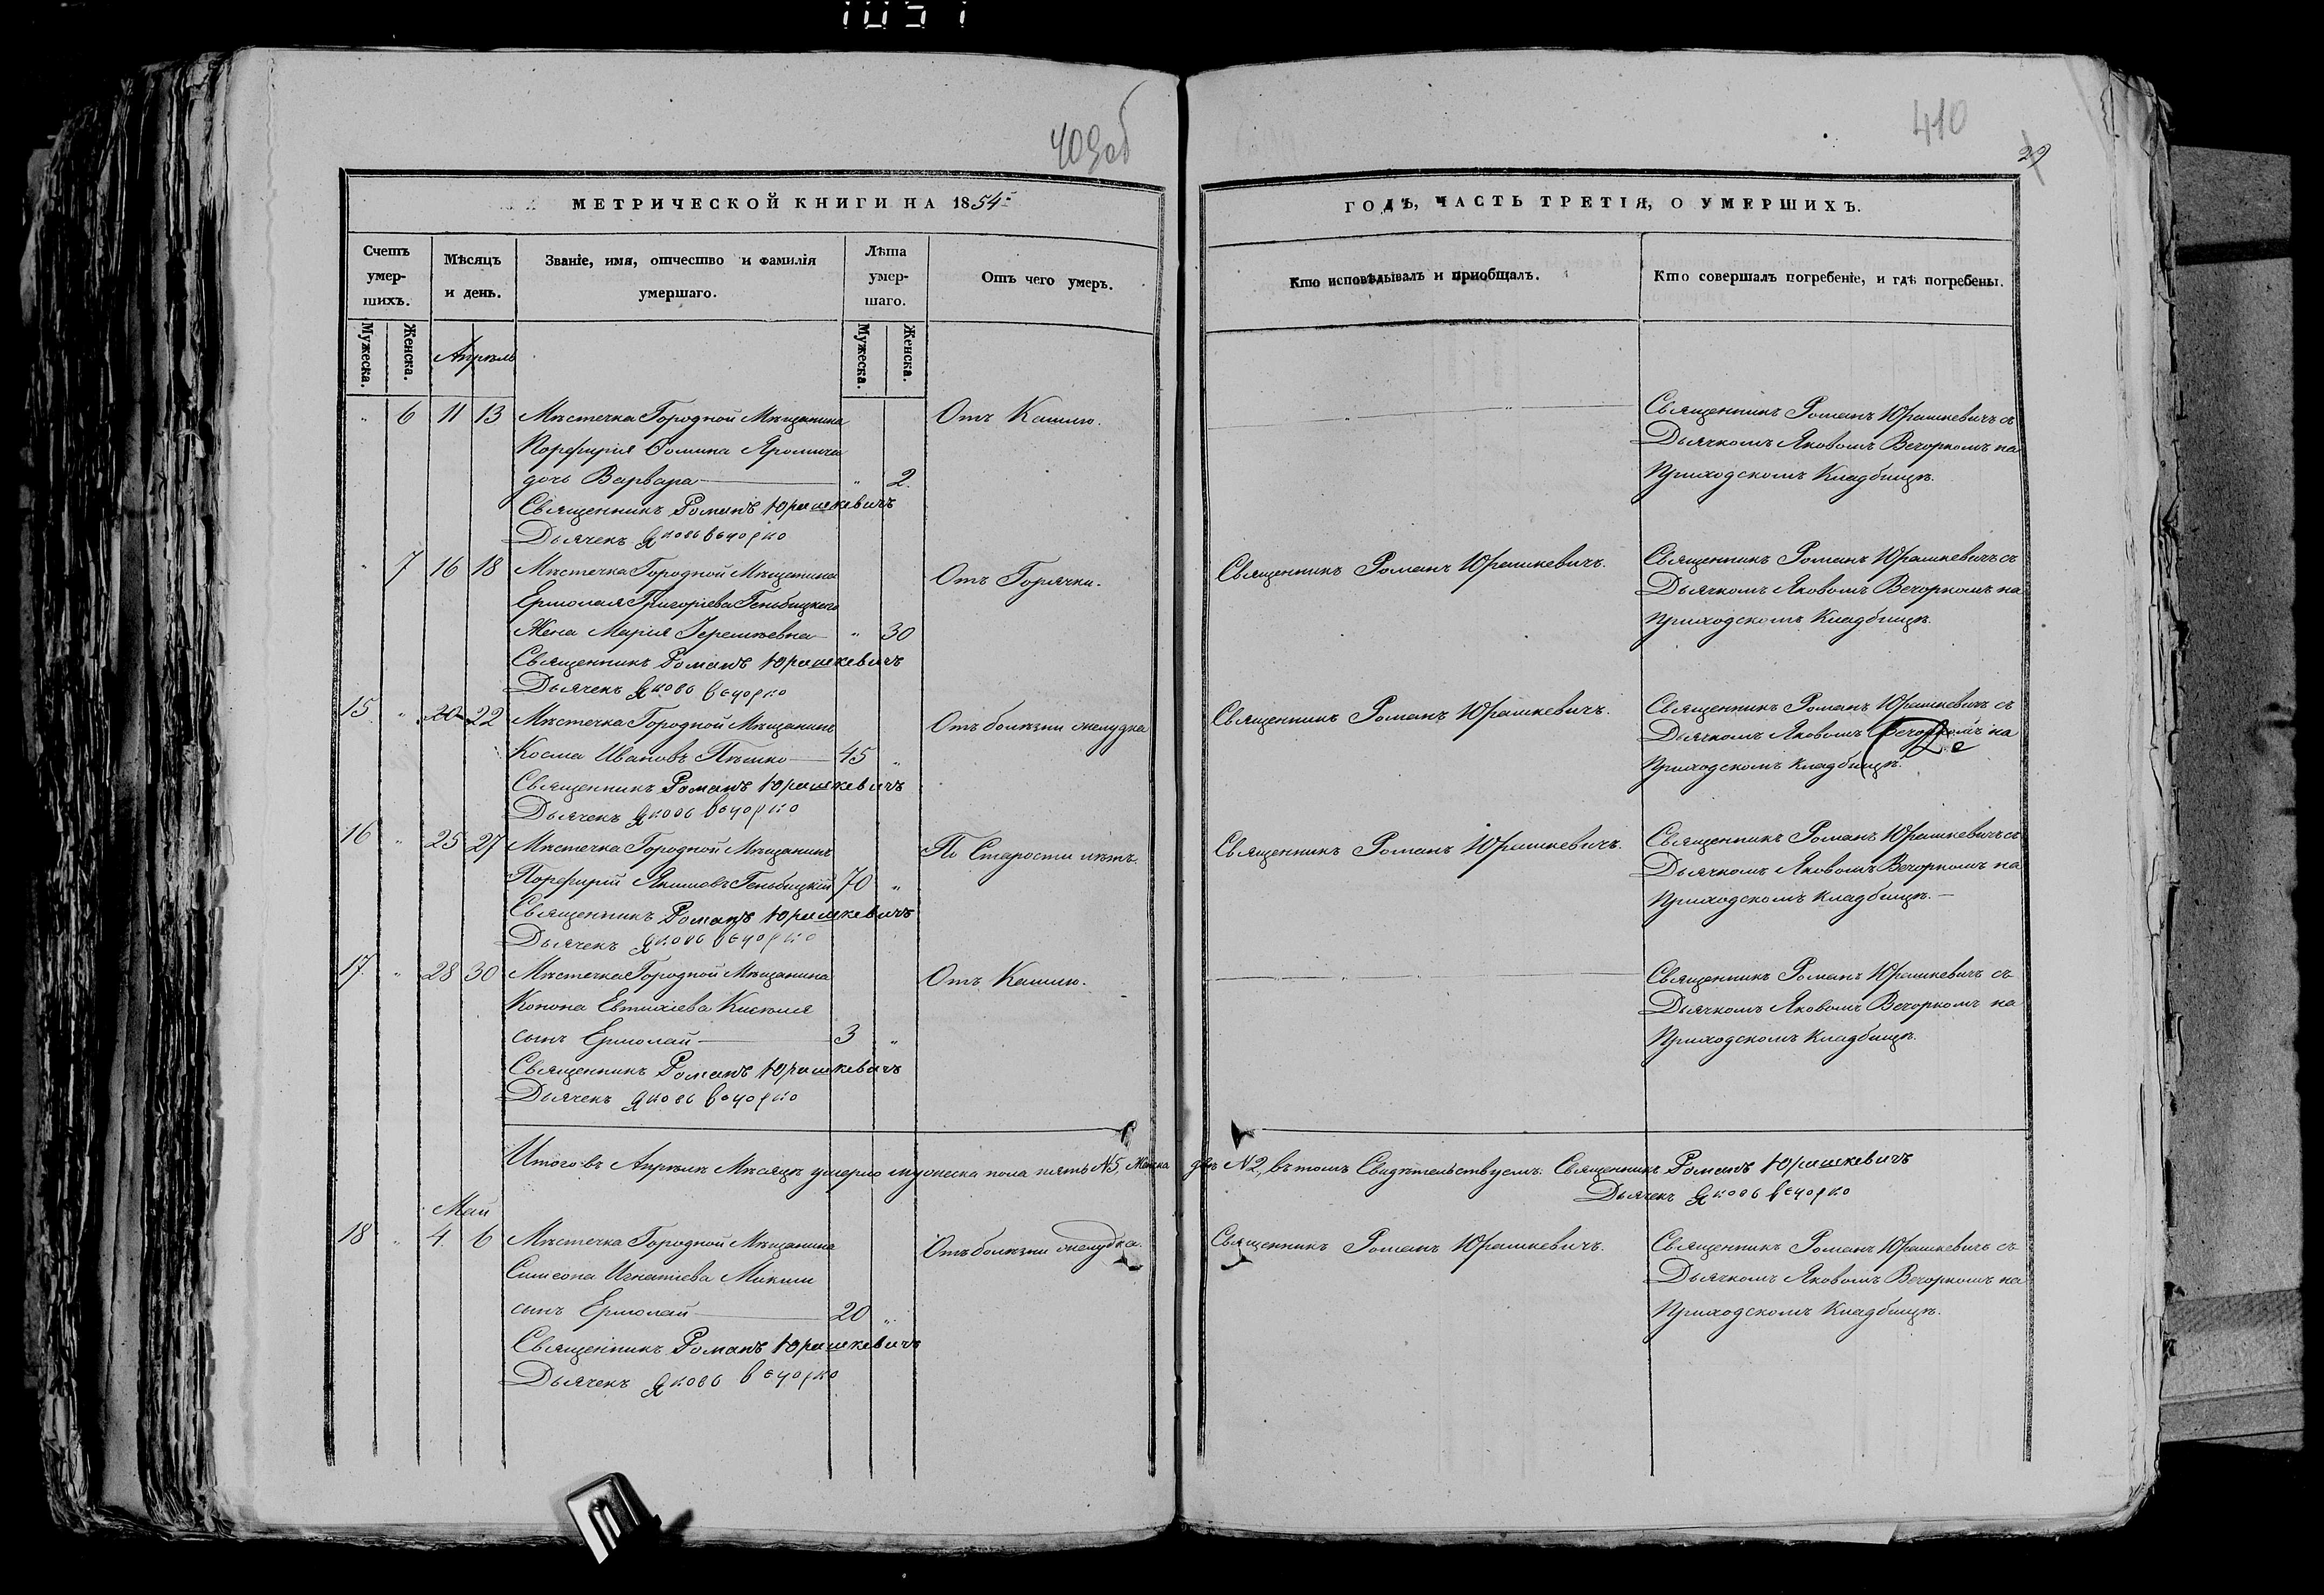 1051
409об
МЕТРИЧЕСКОЙ КНИГИ НА 1854
Счетъ умер-шихъ.
Мѣсяцъ и день.
Званіе, имя, отчество и фамилія умершаго.
Лѣта умер-шаго.
Отъ чего умеръ.
Мужеска. Женска.
Апрѣль
Мужеска. Женска.
" 6 11 13 Мѣстечка Городной Мѣщанина Отъ Кашлю.
Порфирія Фомина Яромича
дочь Варвара " 2.
Священникъ Романъ Юрашкевичъ
Дьячекъ Яковъ Вечорко
" 7 16 18 Мѣстечка Городной Мѣщанина Отъ Горячки.
Ермолая Григоріева Геньбицкаго
Жена Марія Іеремѣевна " 30
Священникъ Романъ Юрашкевичъ
Дьячекъ Яковъ Вечорко
15 " 20 22 Мѣстечка Городной Мѣщанинъ Отъ болѣзни желудка
Косма Ивановъ Пѣшко 45 "
Священникъ Романъ Юрашкевичъ
Дьячекъ Яковъ Вечорко
16 " 25 27 Мѣстечка Городной Мѣщанинъ По Старости лѣтъ.
Порфирій Якимовъ Геньбицкій 70 "
Священникъ Романъ Юрашкевичъ
Дьячекъ Яковъ Вечорко
17 " 28 30 Мѣстечка Городной Мѣщанина Отъ Кашлю.
Конона Евтихіева
сынъ Ермолай 3 "
Священникъ Романъ Юрашкевичъ
Дьячекъ Яковъ Вечорко
Итого въ Апрѣлѣ Мѣсяцѣ умерло мужеска пола пять №5, Женска
Май
18 " 4 6 Мѣстечка Городной Мѣщанина Отъ болѣзни желудка.
Симеона Игнатіева
сынъ Ермолай 20 "
Священникъ Романъ Юрашкевичъ
Дьячекъ Яковъ Вечорко
410
29
ГОДЪ, ЧАСТЬ ТРЕТІЯ, О УМЕРШИХЪ.
Кто исповѣдывалъ и приобщалъ.
Кто совершалъ погребеніе, и гдѣ погребены.
Священникъ Романъ Юрашкевичъ съ
Дьячкомъ Яковомъ Вечоркомъ на
Приходскомъ Кладбищѣ.
Священникъ Романъ Юрашкевичъ. Священникъ Романъ Юрашкевичъ съ
Дьячкомъ Яковомъ Вечоркомъ на
Приходскомъ Кладбищѣ.
Священникъ Романъ Юрашкевичъ. Священникъ Романъ Юрашкевичъ съ
Дьячкомъ Яковомъ Вечоркомъ на
Приходскомъ Кладбищѣ.
Священникъ Романъ Юрашкевичъ. Священникъ Романъ Юрашкевичъ съ
Дьячкомъ Яковомъ Вечоркомъ на
Приходскомъ Кладбищѣ.
Священникъ Романъ Юрашкевичъ съ
Дьячкомъ Яковомъ Вечоркомъ на
Приходскомъ Кладбищѣ.
двѣ №2, въ томъ Свидѣтельствуемъ: Священникъ Романъ Юрашкевичъ
Дьячекъ Яковъ Вечорко
Священникъ Романъ Юрашкевичъ. Священникъ Романъ Юрашкевичъ съ
Дьячкомъ Яковомъ Вечоркомъ на
Приходскомъ Кладбищѣ.